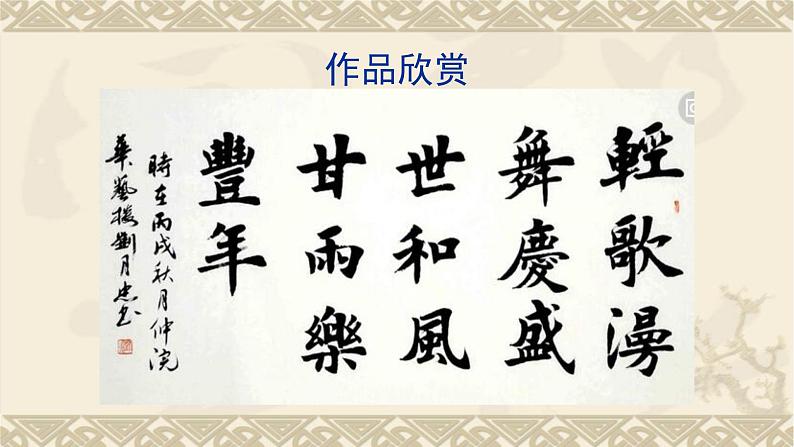 作品欣赏
輕歌漫
舞慶盛
世和風
甘雨樂
豐年
時在丙戌秋月仲浣
華藝樓劉月忠书